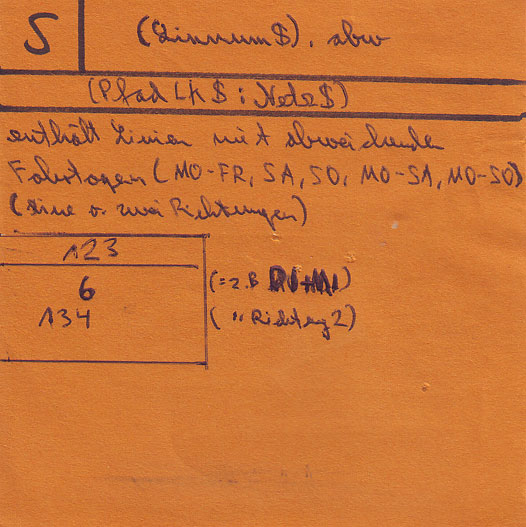 5
(Linnum$). abw
(Pfad LK$ : Netz$)
enthält Linien mit abweichenden
Fahrtagen (MO-FR, SA, SO, MO-SA, MO-SO)
(eine o. zwei Richtungen)
123
6 (= z.B DI+MI)
134 ( " Richtung 2)